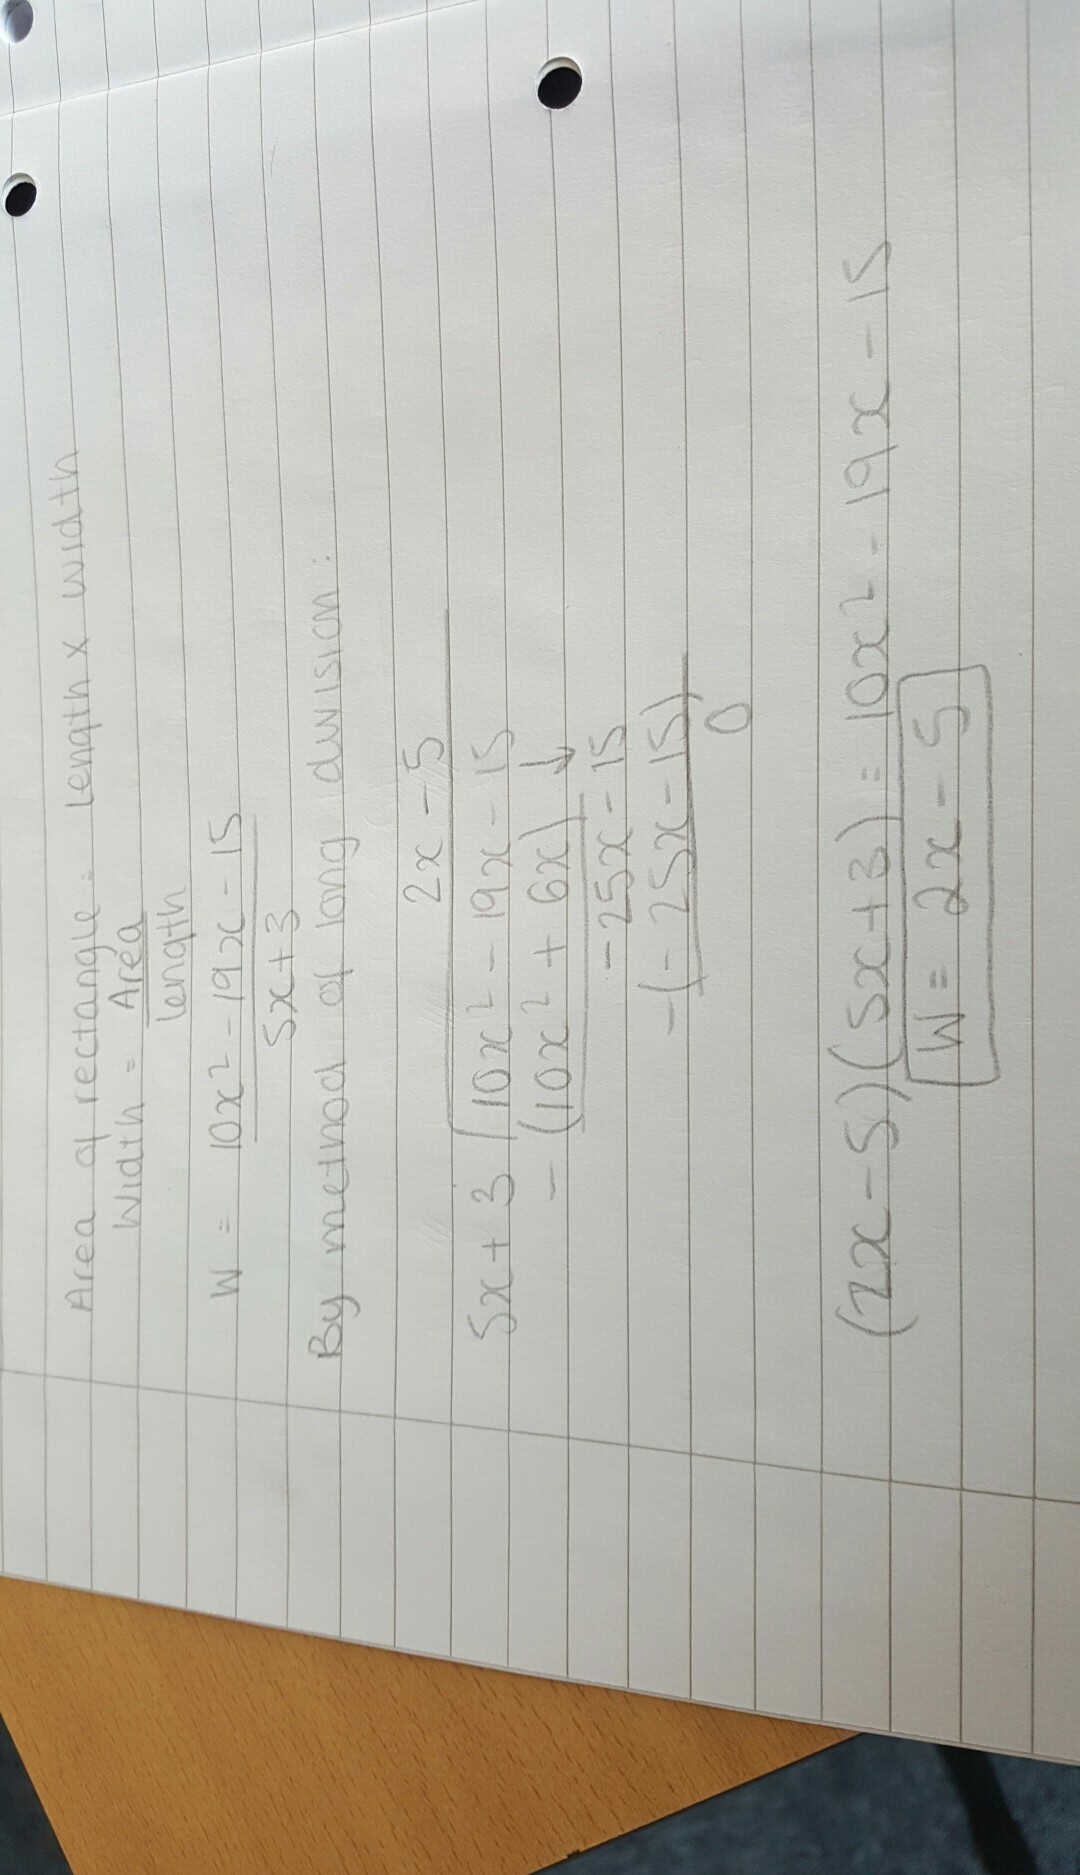 Area of rectangle = length x width
Width = Area
length
W = 10x² - 19x - 15
5x+3
By method of long division:
2x - 5
5x + 3 10x² - 19x - 15
- (10x² + 6x) ↓
-25x - 15
-(-25x - 15)
0
(2x-5)(5x+3) = 10x² - 19x - 15
W = 2x - 5